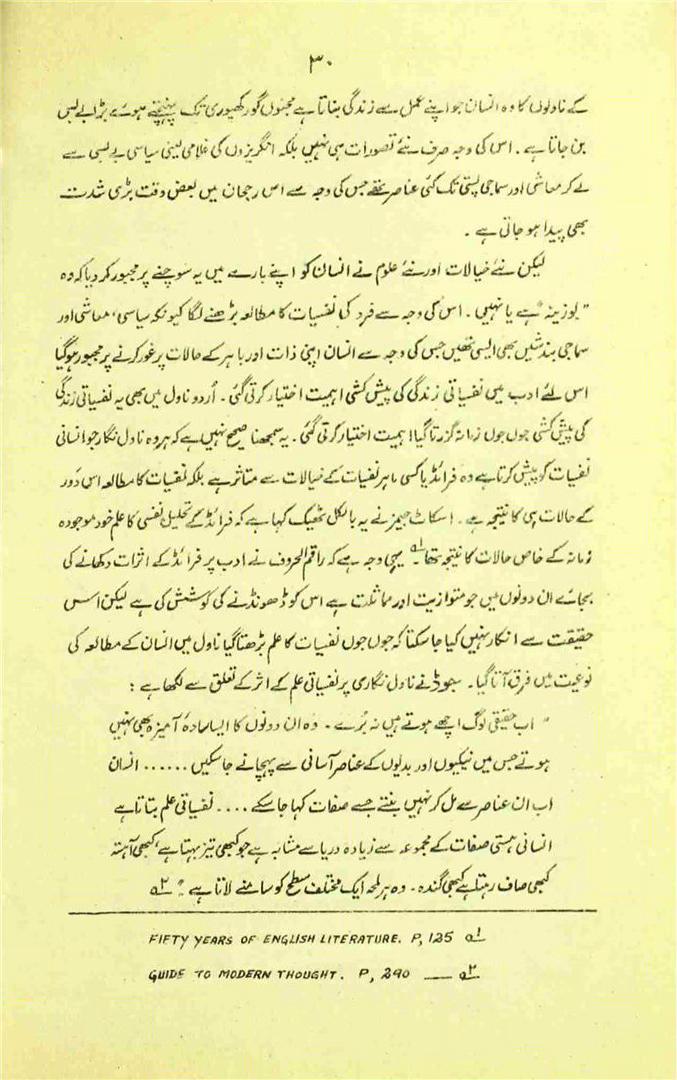 ۳۰
کے ناولوں کا وہ انسان جو اپنے عمل سے زندگی بناتا ہے مجنوں گورکھپوری تک پہنچتے ہوئے بڑا بے بس
بن جاتا ہے۔ اس کی وجہ صرف نئے تصورات ہی نہیں بلکہ انگریزوں کی غلامی لیٔنی سیاسی بے بسی سے
لے کر معاشی اور سماجی پستی تک کئی عناصر تھے جس کی وجہ سے اس رجحان میں بعض وقت بڑی شدت
بھی پیدا ہو جاتی ہے۔
لیکن نئے خیالات اور نئے علوم نے انسان کو اپنے بارے میں یہ سوچنے پر مجبور کر دیا کہ وہ
"بوزینہ" ہے یا نہیں۔ اس کی وجہ سے فرد کی نفسیات کا مطالعہ بڑھنے لگا کیونکہ سیاسی، معاشی اور
سماجی بندشیں بھی ایسی تھیں جس کی وجہ سے انسان اپنی ذات اور باہر کے حالات پر غور کرنے پر مجبور ہو گیا
اس لئے ادب میں نفسیاتی زندگی کی پیش کشی اہمیت اختیار کرتی گئی۔ اُردو ناول میں بھی یہ نفسیاتی زندگی
کی پیش کشی جوں جوں زمانہ گزرتا گیا اہمیت اختیار کرتی گئی۔ یہ سمجھنا صحیح نہیں ہے کہ ہر وہ ناول نگار جو انسانی
نفسیات کو پیش کرتا ہے وہ فرائڈ یا کسی ماہر نفسیات کے خیالات سے متاثر ہے بلکہ نفسیات کا مطالعہ اس دَور
کے حالات ہی کا نتیجہ ہے۔ اسکاٹ جیمز نے یہ بالکل ٹھیک کہا ہے کہ فرائڈ کے تحلیل نفسی کا علم خود موجودہ
زمانہ کے خاص حالات کا نتیجہ تھا۔ ؎۱ یہی وجہ ہے کہ راقم الحروف نے ادب پر فرائڈ کے اثرات دکھانے کی
بجائے ان دونوں میں جو متوازیت اور مماثلت ہے اس کو ڈھونڈنے کی کوشش کی ہے لیکن اس
حقیقت سے انکار نہیں کیا جا سکتا کہ جوں جوں نفسیات کا علم بڑھتا گیا ناول میں انسان کے مطالعہ کی
نوعیت میں فرق آتا گیا۔ جوڈ نے ناول نگاری پر نفسیاتی علم کے اثر کے تعلق سے لکھا ہے:
"اب حقیقی لوگ اچھے ہوتے ہیں نہ بُرے۔ وہ ان دونوں کا ایسا سادہ آمیزہ بھی نہیں
ہوتے جس میں نیکیوں اور بدیوں کے عناصر آسانی سے پہچانے جا سکیں ...... انسان
اب ان عناصر سے مل کر نہیں بنتے جسے صفات کہا جا سکے .... نفسیاتی علم بتاتا ہے
انسانی ہستی صفات کے مجموعہ سے زیادہ دریا سے مشابہ ہے جو کبھی تیز بہتا ہے، کبھی آہستہ
کبھی صاف رہتا ہے کبھی گندہ۔ وہ ہر لمحہ ایک مختلف سطح کو سامنے لاتا ہے۔" ؎۲
؎۱ FIFTY YEARS OF ENGLISH LITERATURE. P, 125
؎۲ — GUIDE TO MODERN THOUGHT. P, 290